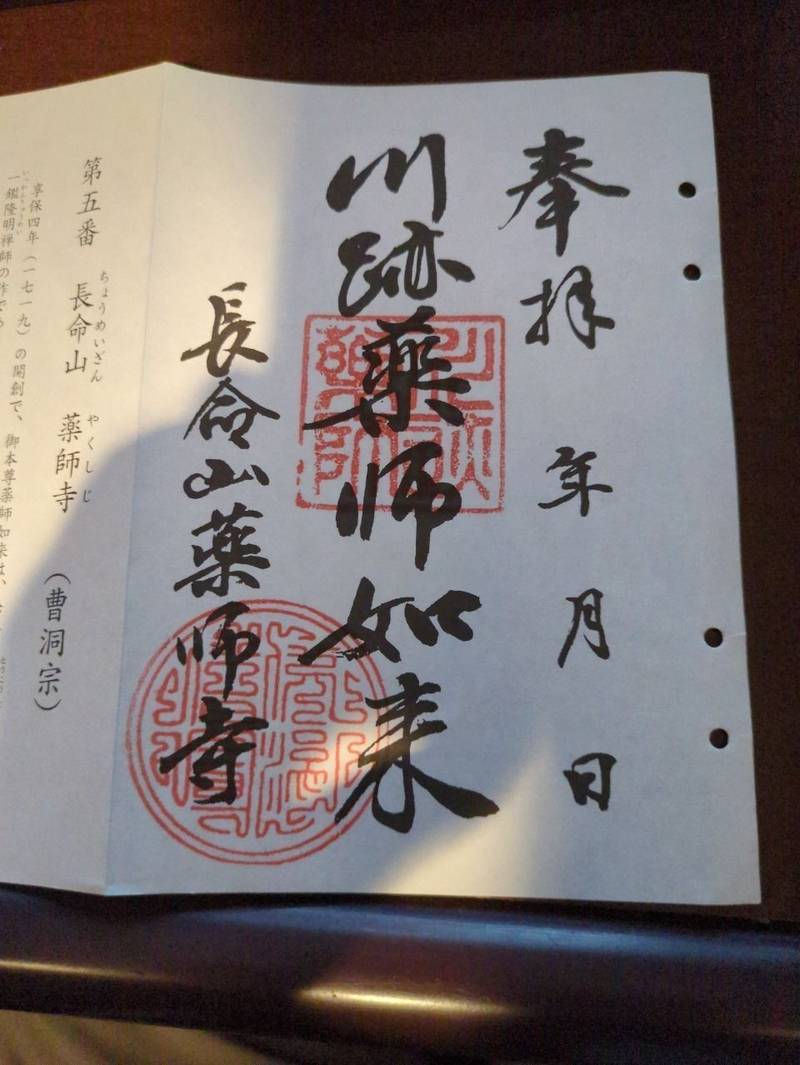 奉拝　年　月　日
川跡薬師如来
長命山薬師寺
第五番　長命山　薬師寺　（曹洞宗）
ちょうめいざん　やくしじ
享保四年（一七一九）の開創で、御本尊薬師如来は、
一鑑隆明禅師の作で